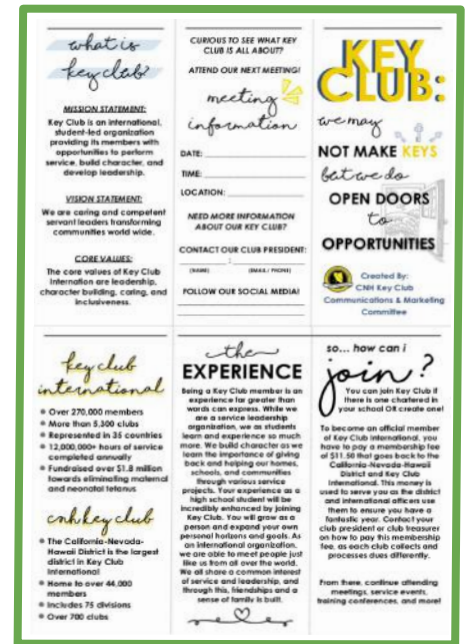 what is
key club?
MISSION STATEMENT:
Key Club is an international,
student-led organization
providing its members with
opportunities to perform
service, build character, and
develop leadership.
VISION STATEMENT:
We are caring and competent
servant leaders transforming
communities world wide.
CORE VALUES:
The core values of Key Club
Internation are leadership,
character building, caring, and
inclusiveness.
CURIOUS TO SEE WHAT KEY
CLUB IS ALL ABOUT?
ATTEND OUR NEXT MEETING!
meeting
information
DATE:
TIME:
LOCATION:
NEED MORE INFORMATION
ABOUT OUR KEY CLUB?
CONTACT OUR CLUB PRESIDENT:
:
(NAME) (EMAIL / PHONE)
FOLLOW OUR SOCIAL MEDIA!
KEY
CLUB:
we may
NOT MAKE KEYS
but we do
OPEN DOORS
to
OPPORTUNITIES
Created By:
CNH Key Club
Communications & Marketing
Committee
key club
international
Over 270,000 members
More than 5,300 clubs
Represented in 35 countries
12,000,000+ hours of service
completed annually
Fundraised over $1.8 million
towards eliminating maternal
and neonatal tetanus
cnh key club
The California-Nevada-
Hawaii District is the largest
district in Key Club
International
Home to over 44,000
members
Includes 75 divisions
Over 700 clubs
the
EXPERIENCE
Being a Key Club member is an
experience far greater than
words can express. While we
are a service leadership
organization, we as students
learn and experience so much
more. We build character as we
learn the importance of giving
back and helping our homes,
schools, and communities
through various service
projects. Your experience as a
high school student will be
incredibly enhanced by joining
Key Club. You will grow as a
person and expand your own
personal horizons and goals. As
an international organization,
we are able to meet people just
like us from all over the world.
We all share a common interest
of service and leadership, and
through this, friendships and a
sense of family is built.
so... how can i
join?
You can join Key Club if
there is one chartered in
your school OR create one!
To become an official member
of Key Club International, you
have to pay a membership fee
of $11.50 that goes back to the
California-Nevada-Hawaii
District and Key Club
International. This money is
used to serve you as the district
and international officers use
them to ensure you have a
fantastic year. Contact your
club president or club treasurer
on how to pay this membership
fee, as each club collects and
processes dues differently.
From there, continue attending
meetings, service events,
training conferences, and more!